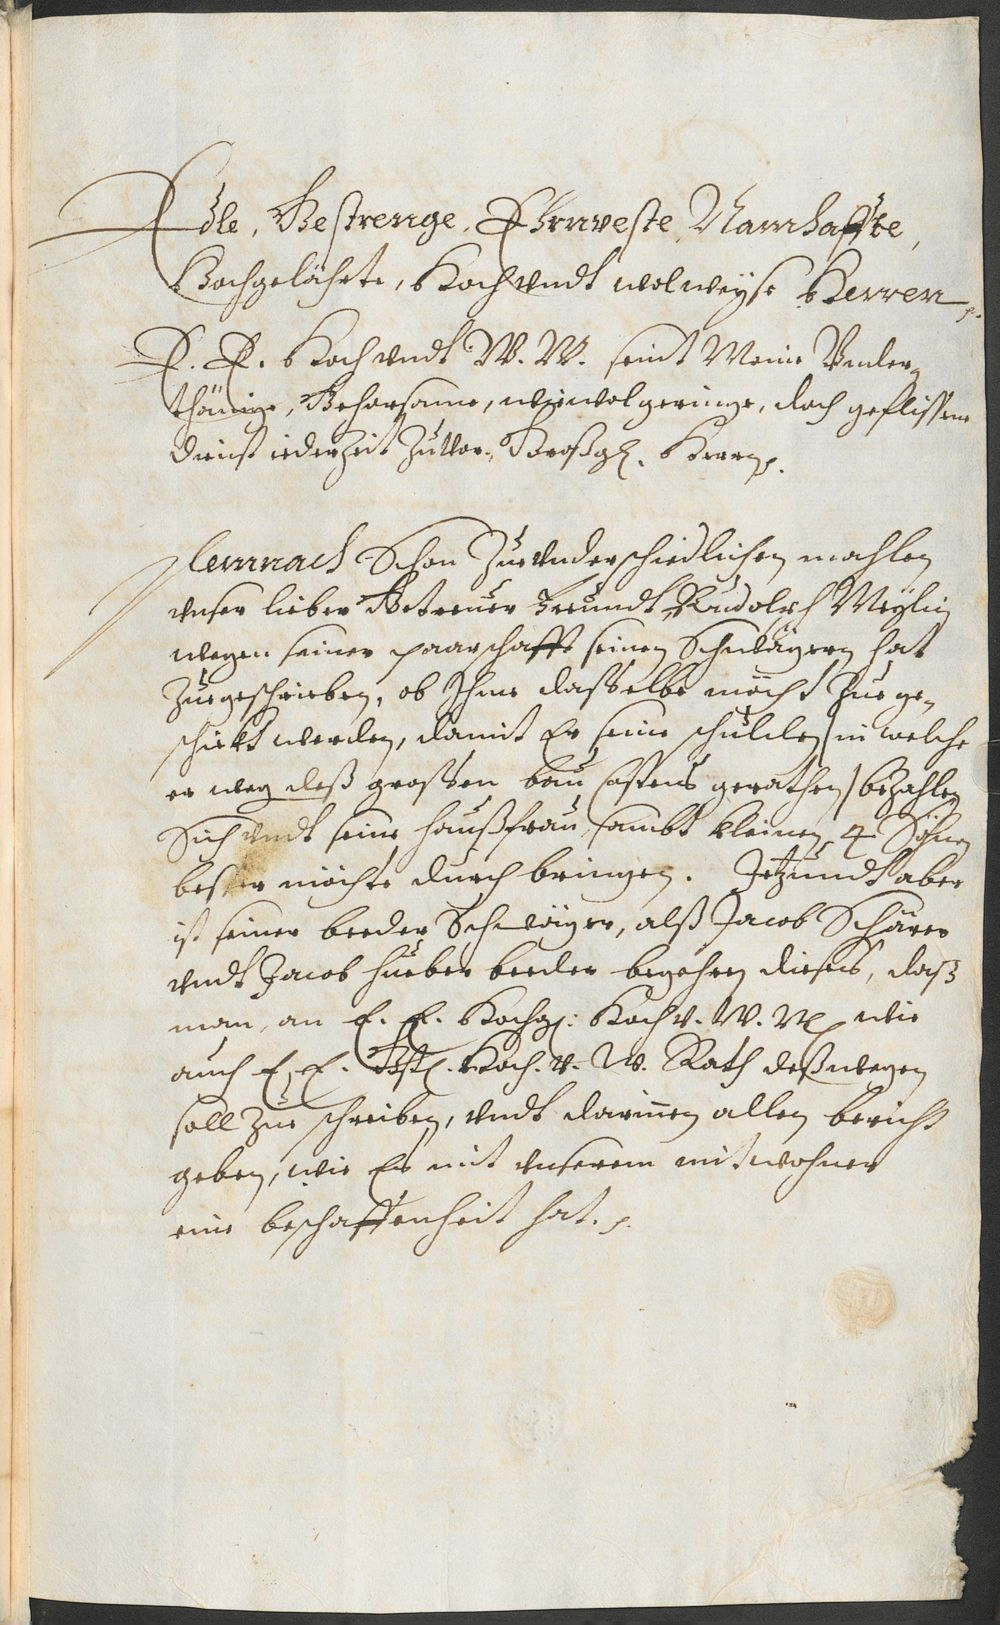 Edle, Gestrenge, Ehrnveste, Namhaffte,
Hochgelährte, Hoch vndt wolweyse Herren p.
E. E. Hoch vndt W. W. seint Meine Vnder-
thänige, Gehorsame, wiewol geringe, doch geflissene
dienst iederzeit Zuuor. Großg. Herren p.
Demnach Schon Zue vnderschiedlichen mahlen
vnser lieber Getreuer Freundt Rudolph Meylin
wegen seiner paarschafft seinen Schwägern hat
Zuegeschrieben, ob Ihme dasselbe möcht Zuege-
schickt werden, damit Er seine schulden (in welche
er weg deß grossen bau costens gerathen) bezahlen
Sich vndt seine haußfrau, sambt kleinen 4 Söhnen
besser möchte durch bringen. Jetzundt aber
ist seiner beeder Schwäger, alß Jacob Schärer
vndt Jacob Hueber beeder begehren dieses, daß
man, an E. E. Hochg: Hoch v. W. W. wie
auch E. E. Gst. Hoch. v. W. Rath deßwegen
soll Zue schreiben, vndt darinnen allen bericht
geben, wie Er mit vnserem mitwohner
eine beschaffenheit hat. p.